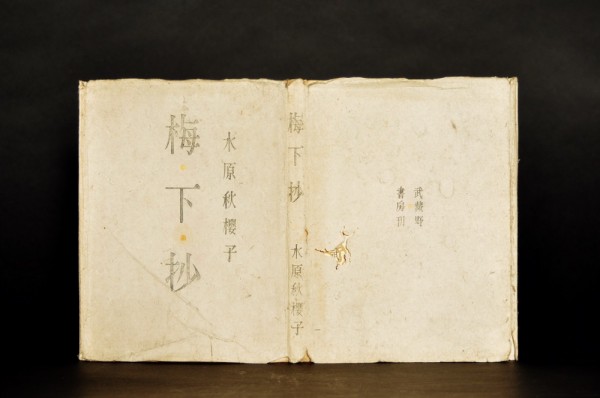 武藏野
書房刊
梅下抄 水原秋櫻子
水原秋櫻子
梅・下・抄